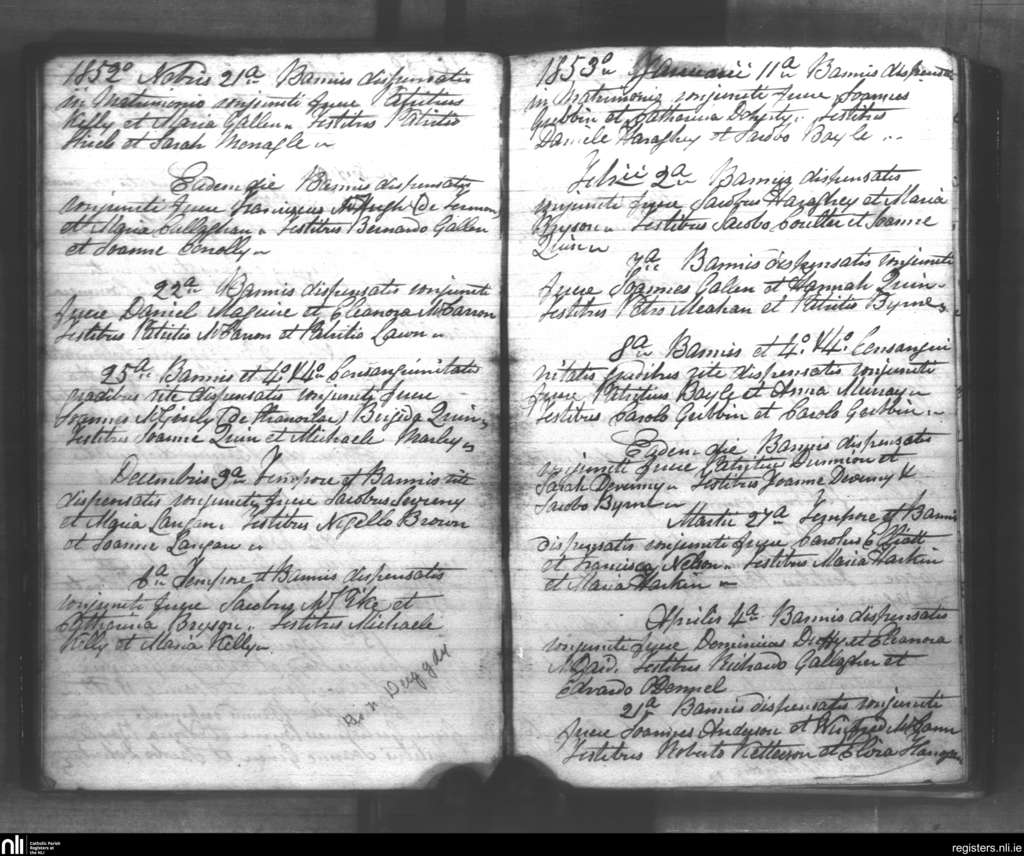 1852o Nobris 21a Bannis dispensatis
in Matrimonio conjuncti fuere Patritius
Kelly et Maria Gallen. Testibus Patritio
et Sarah Monagle
Eadem die Bannis dispensatis
conjuncti fuere Franciscus (de Fermon)
et Maria Callaghan. Testibus Bernardo Gallen
et Joanne Conolly
22a Bannis dispensatis conjuncti
fuere Daniel Maguire et Eleanora McCarron
Testibus Patritio McCarron et Patritio
25a Bannis et 4o & 4o Consanguinitatis
gradibus rite dispensatis conjuncti fuere
Joannes McGinly (de) Brigida Quin.
Testibus Joanne Quin et Michaele Marley
Decembris 3a Tempore et Bannis rite
dispensatis conjuncti fuere Jacobus
et Maria Langan. Testibus Nigello Brown
et Joanne Langan
6a Tempore et Bannis dispensatis
conjuncti fuere Jacobus et
Catharina Bryson. Testibus Michaele
Kelly et Maria Kelly
1853o Januarii 11a Bannis dispensatis
in Matrimonio conjuncti fuere Joannes
Gubbin et Catharina Doherty. Testibus
Daniele Haraghey et Jacobo Boyle
Febrii 2a Bannis dispensatis
conjuncti fuere Jacobus Haraghey et Maria
Bryson. Testibus Jacobo Coulter et Joanne
Quin
7a Bannis dispensatis conjuncti
fuere Joannes Galen et Hannah Quin.
Testibus Petro Meahan et Patritio Byrne
8a Bannis et 4o & 4o Consangui
nitatis gradibus rite dispensatis conjuncti
fuere Patritius Boyle et Anna Murray
Testibus Carolo Gubbin et Carolo Gubbin
Eadem die Bannis dispensatis
conjuncti fuere Patritius et
Sarah Devenny. Testibus Joanne Devenny &
Jacobo Byrne
Martii 27a Tempore et Bannis
dispensatis conjuncti fuere Carolus Elliott
et Francisca Nelson. Testibus Maria Harkin
et Maria Harkin
Aprilis 4a Bannis dispensatis
conjuncti fuere Dominicus Duffy et Eleanora
Testibus Richardo Gallagher et
Edvardo ODonnel
21a Bannis dispensatis conjuncti
fuere Joannes Anderson et Winifred McCann
Testibus Roberto Patterson et
nli
Catholic Parish
Registers at
the NLI
registers.nli.ie